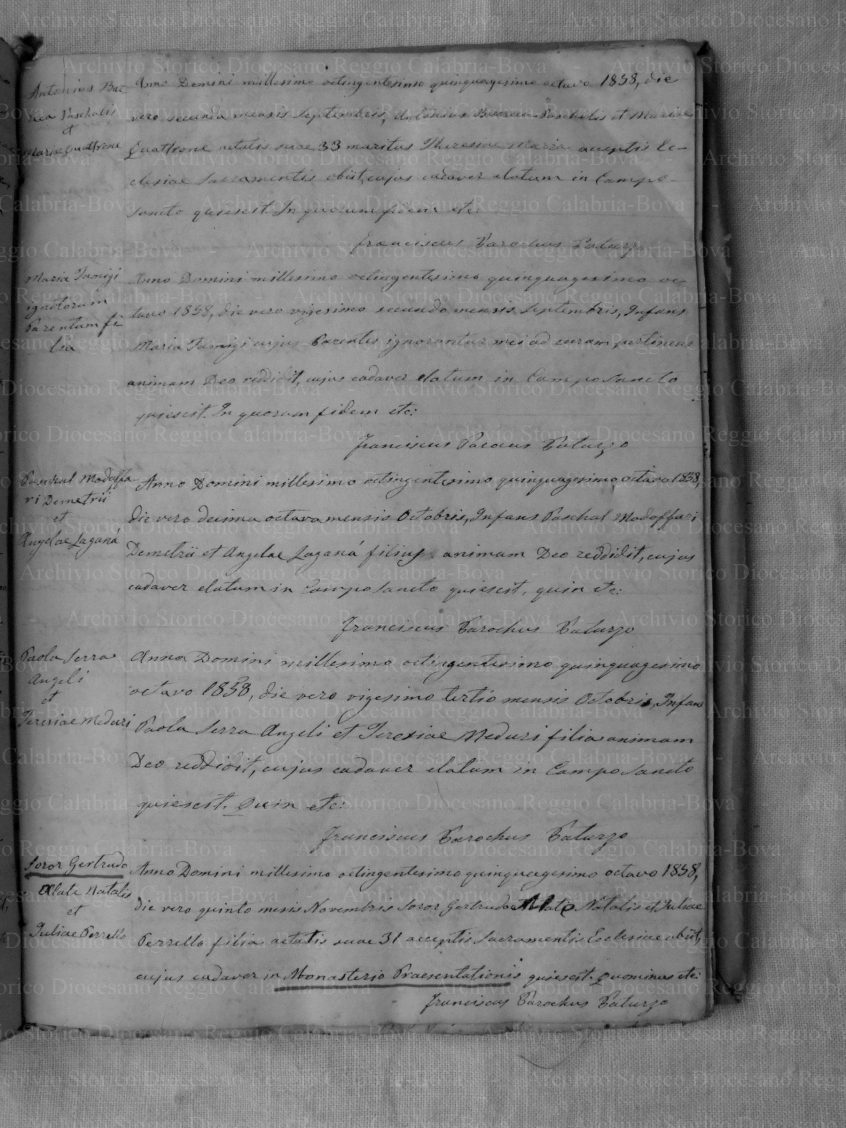 Antonius Bue
Paschalis
et
Mariae Quattrone
Anno Domini millesimo octingentesimo quinquagesimo octavo 1858, die
vero secunda mensis Septembris, Antonius Paschalis et Mariae
Quattrone aetatis suae 33 maritus Theresiae acceptis Ec-
clesiae Sacramentis obiit, cujus cadaver elatum in Campo-
sancto quiescit. In quorum fidem etc:
Franciscus Parochus Caturzo
Maria Tamigi
ignotorum
Parentum fi
lia
Anno Domini millesimo octingentesimo quinquagesimo oc-
tavo 1858, die vero vigesimo secundo mensis Septembris, Infans
Maria Tamigi cujus Parentes ignorantur mei ad curam pertinens
animam Deo reddidit, cujus cadaver elatum in Campo Sancto
quiescit. In quorum fidem etc:
Franciscus Caturzo
Modaffa
ri Demetrii
et
Angelae Laganá
Anno Domini millesimo octingentesimo quinquagesimo octavo 1858,
die vero decima octava mensis Octobris, Infans Paschal Modaffari
Demetrii et Angelae Laganá filius animam Deo reddidit, cujus
cadaver elatum in Campo Sancto quiescit, quin etc:
Franciscus Parochus Caturzo
Paola Serra
Angeli
et
Teresiae Meduri
Anno Domini millesimo octingentesimo quinquagesimo
octavo 1858, die vero vigesimo tertio mensis Octobris, Infans
Paola Serra Angeli et Teresiae Meduri filia animam
Deo reddidit, cujus cadaver elatum in Campo Sancto
quiescit. Quin etc:
Franciscus Parochus Caturzo
Soror Gertrude
Natalis
et
Juliae Perrello
Anno Domini millesimo octingentesimo quinquagesimo octavo 1858,
die vero quinto mensis Novembris Soror Gertrude Natalis et Juliae
Perrello filia aetatis suae 31 acceptis Sacramentis Ecclesiae obiit,
cujus cadaver in Monasterio Praesentationis quiescit. Quominus etc:
Franciscus Parochus Caturzo
Archivio Storico Diocesano Reggio Calabria-Bova